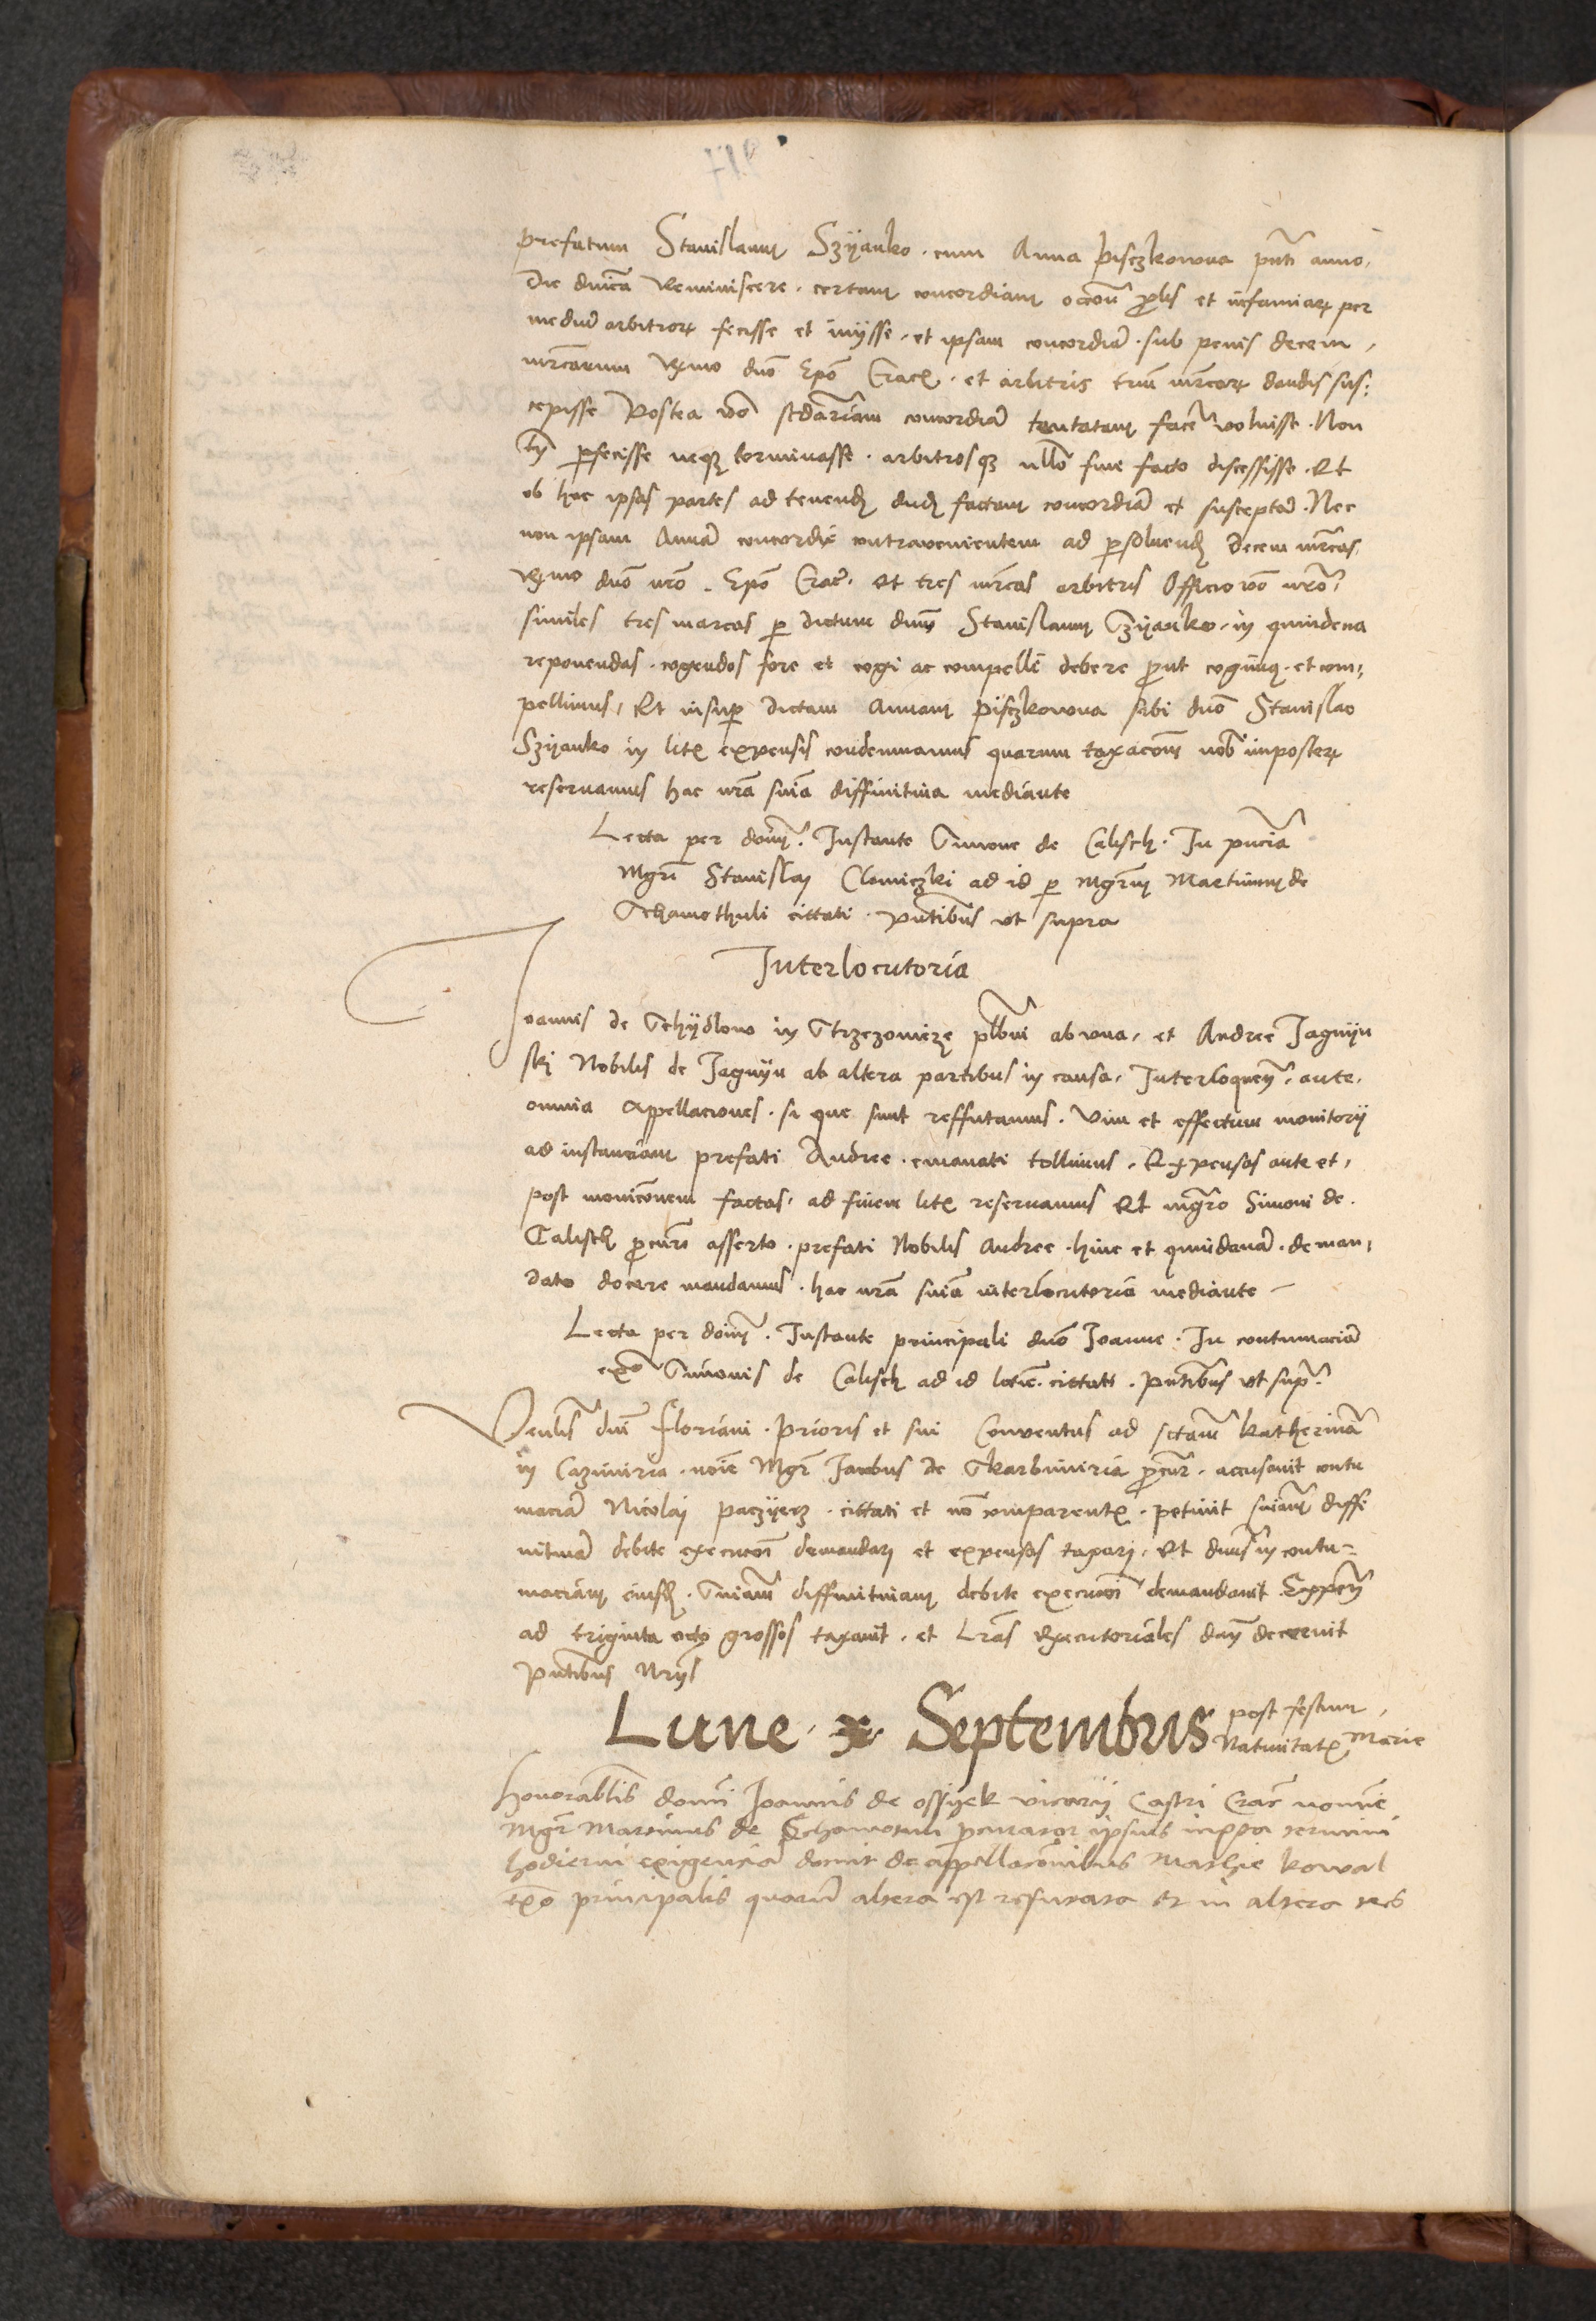 prefatum Stanislaum Szyanko cum Anna Pisczkowna pnti anno
Die dnica Reminiscere certam concordiam occoe prolis et infamiarum per
mediu arbitrorum fecisse et inysse et ipsam concordia sub penis decem
mrcarum Rmo dno Epo Crac et arbitris triu mrcarum dandis sus
cepisse Postea vo scdariam concordia tentatam face voluisse Non
tn pfecisse neqz terminasse arbitrosqz nllo fine facto discessisse Et
ob hoc ipsas partes ad tenend dud factam concordia et suscepta Nec
non ipsam Anna concordie contravenientem ad psoluend Decem mrcas
Rmo dno nro Epo Crac et tres mrcas arbitris Officio vo nro
similes tres marcas p dictum dnm Stanislaum Szyanko in quindena
reponendas cogendos fore et cogi ac compelli debere prout cogimus et com
pellimus Et insup dictam Annam Pisczkowna sibi dno Stanislao
Szyanko in litis expensis condemnamus quarum taxacoem nob imposterum
reservamus hac nra snia diffinitiva mediante
Lecta per dom Instante Simone de Calisch In pncia
Mgri Stanislai Clomiczki ad id p Mgrum Martinum de
Schamothuli cittati pntibus ut supra
Interlocutoria
Joannis de Schydlow in Strzezomicze plbni ab una et Andree Jagnyn
ski Nobilis de Jagnyn ab altera partibus in causa Interloquen ante
omnia Appellaciones si que sunt reffutamus Vim et effectum monitorii
ad instanciam prefati Andree emanati tollimus Expensas ante et
post monicoem factas ad finem litis reservamus Et mgro Simoni de
Calisch procuri asserto prefati Nobilis Andree hinc et quindena de man
dato docere mandamus hac nra snia interlocutoria mediante
Lecta per dom Instante principali dno Joanne In contumacia
ex Simonis de Calisch ad id cittati pntibus ut sup
Venlis dni Floriani Prioris et sui Conventus ad sctam Katherina
in Cazimiria noie Mgr Jacobus de Skarbimiria procur accusavit contu
macia Nicolai paczyerz cittati et no comparentis petivit sniam diffi
nitiva debite execucoi demandari et expensas taxari Et dnus in contu=
maciam eiusd Sniam diffinitivam debite execucoi demandavit Expen
ad triginta octo grossos taxavit et Lras executoriales dan decrevit
Pntibus Nrys
Lune x Septembris post festum
Nativitatis Marie
Honorablis domi Joannis de Ossyek vicarii Castri Crac nomie
Mgr Martinus de Schamotuli procurator ipsius iuxta termini
hodierni exigencia docuit de appellacoibus Mathie Kowal
ex principalis quaru altera est refutata et in altera res